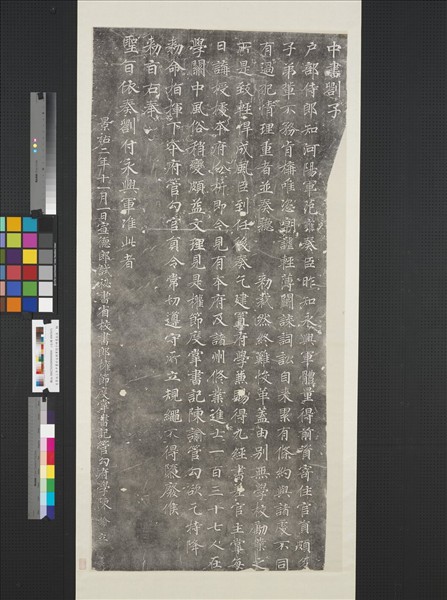 中書劄子
戶部侍郎知河陽軍范雍奏臣昨知永興軍體量得前資寄住官員頗多
子弟輩不務肯構唯恣嘲謔輕薄鬭諜詞訟自來累有條約與諸處不同
有過犯情理重者並奏聽 敕裁然終難悛革蓋由別無學校勵業之
所是致輕悍成風臣到任後奏乞建置府學兼賜得九經書差官主掌每
日講授據本府分析即今見有本府及諸州修業進士一百三十七人在
學關中風俗稍變頗益文理見是權節度掌書記陳諭管勾欲乞特降
敕命指揮下本府管勾官員令常切遵守所立規繩不得隳廢候
敕旨右奉
聖旨依奏劄付永興軍准此者
景祐二年十一月一日宣德郎試秘書省校書郎權節度掌書記管勾府學陳諭立